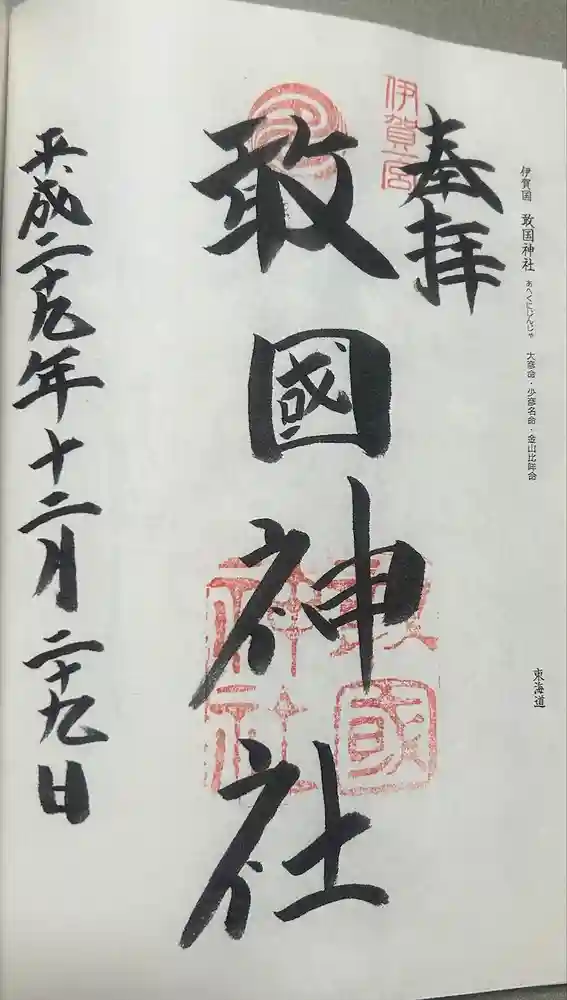 伊賀国 敢国神社 あへくにじんじゃ 大彦命・少彦名命・金山比咩命
東海道
奉拝
伊賀一宮
敢國神社
敢國神社
平成二十九年十二月二十九日